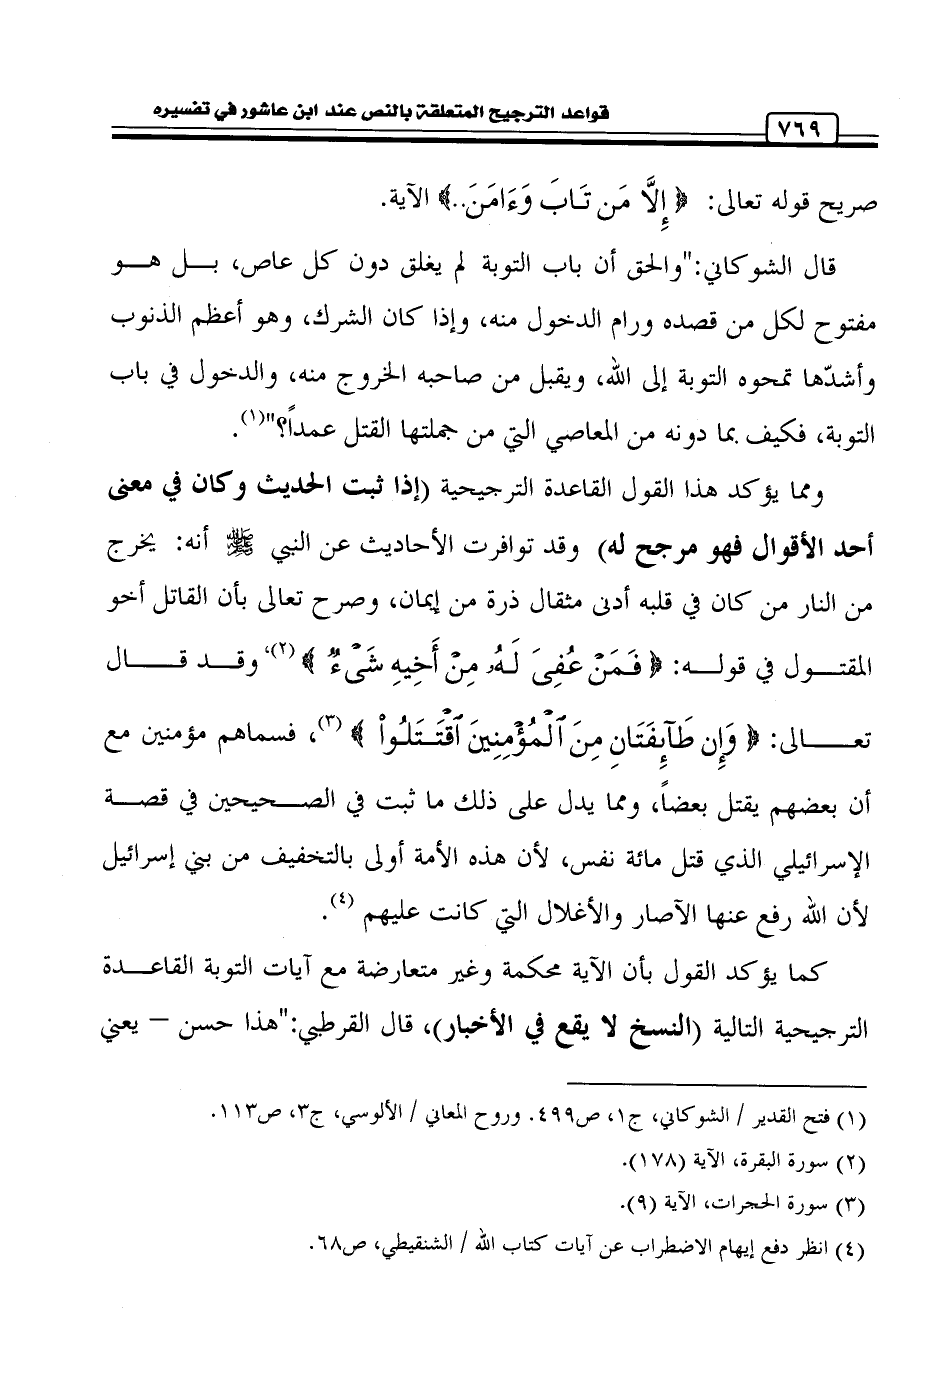 قواعد الترجيح المتعلقة بالنص عند ابن عاشور في تفسيره
٧٦٩
صريح قوله تعالى: ﴿ إِلَّا مَن تَابَ وَءَامَنَ..﴾ الآية.
قال الشوكاني:"والحق أن باب التوبة لم يغلق دون كل عاص، بـل هـو
مفتوح لكل من قصده ورام الدخول منه، وإذا كان الشرك، وهو أعظم الذنوب
وأشدّها تمحوه التوبة إلى الله، ويقبل من صاحبه الخروج منه، والدخول في باب
التوبة، فكيف بما دونه من المعاصي التي من جملتها القتل عمداً؟"(١).
ومما يؤكد هذا القول القاعدة الترجيحية (إذا ثبت الحديث وكان في معنى
أحد الأقوال فهو مرجح له) وقد توافرت الأحاديث عن النبي ﷺ أنه: يخرج
من النار من كان في قلبه أدنى مثقال ذرة من إيمان، وصرح تعالى بأن القاتل أخو
المقتول في قولـه: ﴿ فَمَنْ عُفِىَ لَهُۥ مِنْ أَخِيهِ شَىْءٌ ﴾ (٢)، وقـد قـال
تعـالى: ﴿ وَإِن طَآئِفَتَانِ مِنَ ٱلْمُؤْمِنِينَ ٱقْتَتَلُوا۟ ﴾ (٣)، فسماهم مؤمنين مع
أن بعضهم يقتل بعضاً، ومما يدل على ذلك ما ثبت في الصـحيحين في قصـة
الإسرائيلي الذي قتل مائة نفس، لأن هذه الأمة أولى بالتخفيف من بني إسرائيل
لأن الله رفع عنها الآصار والأغلال التي كانت عليهم (٤).
كما يؤكد القول بأن الآية محكمة وغير متعارضة مع آيات التوبة القاعـدة
الترجيحية التالية (النسخ لا يقع في الأخبار)، قال القرطبي:"هذا حسن – يعني
(١) فتح القدير / الشوكاني، ج١، ص٤٩٩. وروح المعاني / الألوسي، ج٣، ص١١٣.
(٢) سورة البقرة، الآية (١٧٨).
(٣) سورة الحجرات، الآية (٩).
(٤) انظر دفع إيهام الاضطراب عن آيات كتاب الله / الشنقيطي، ص٦٨.